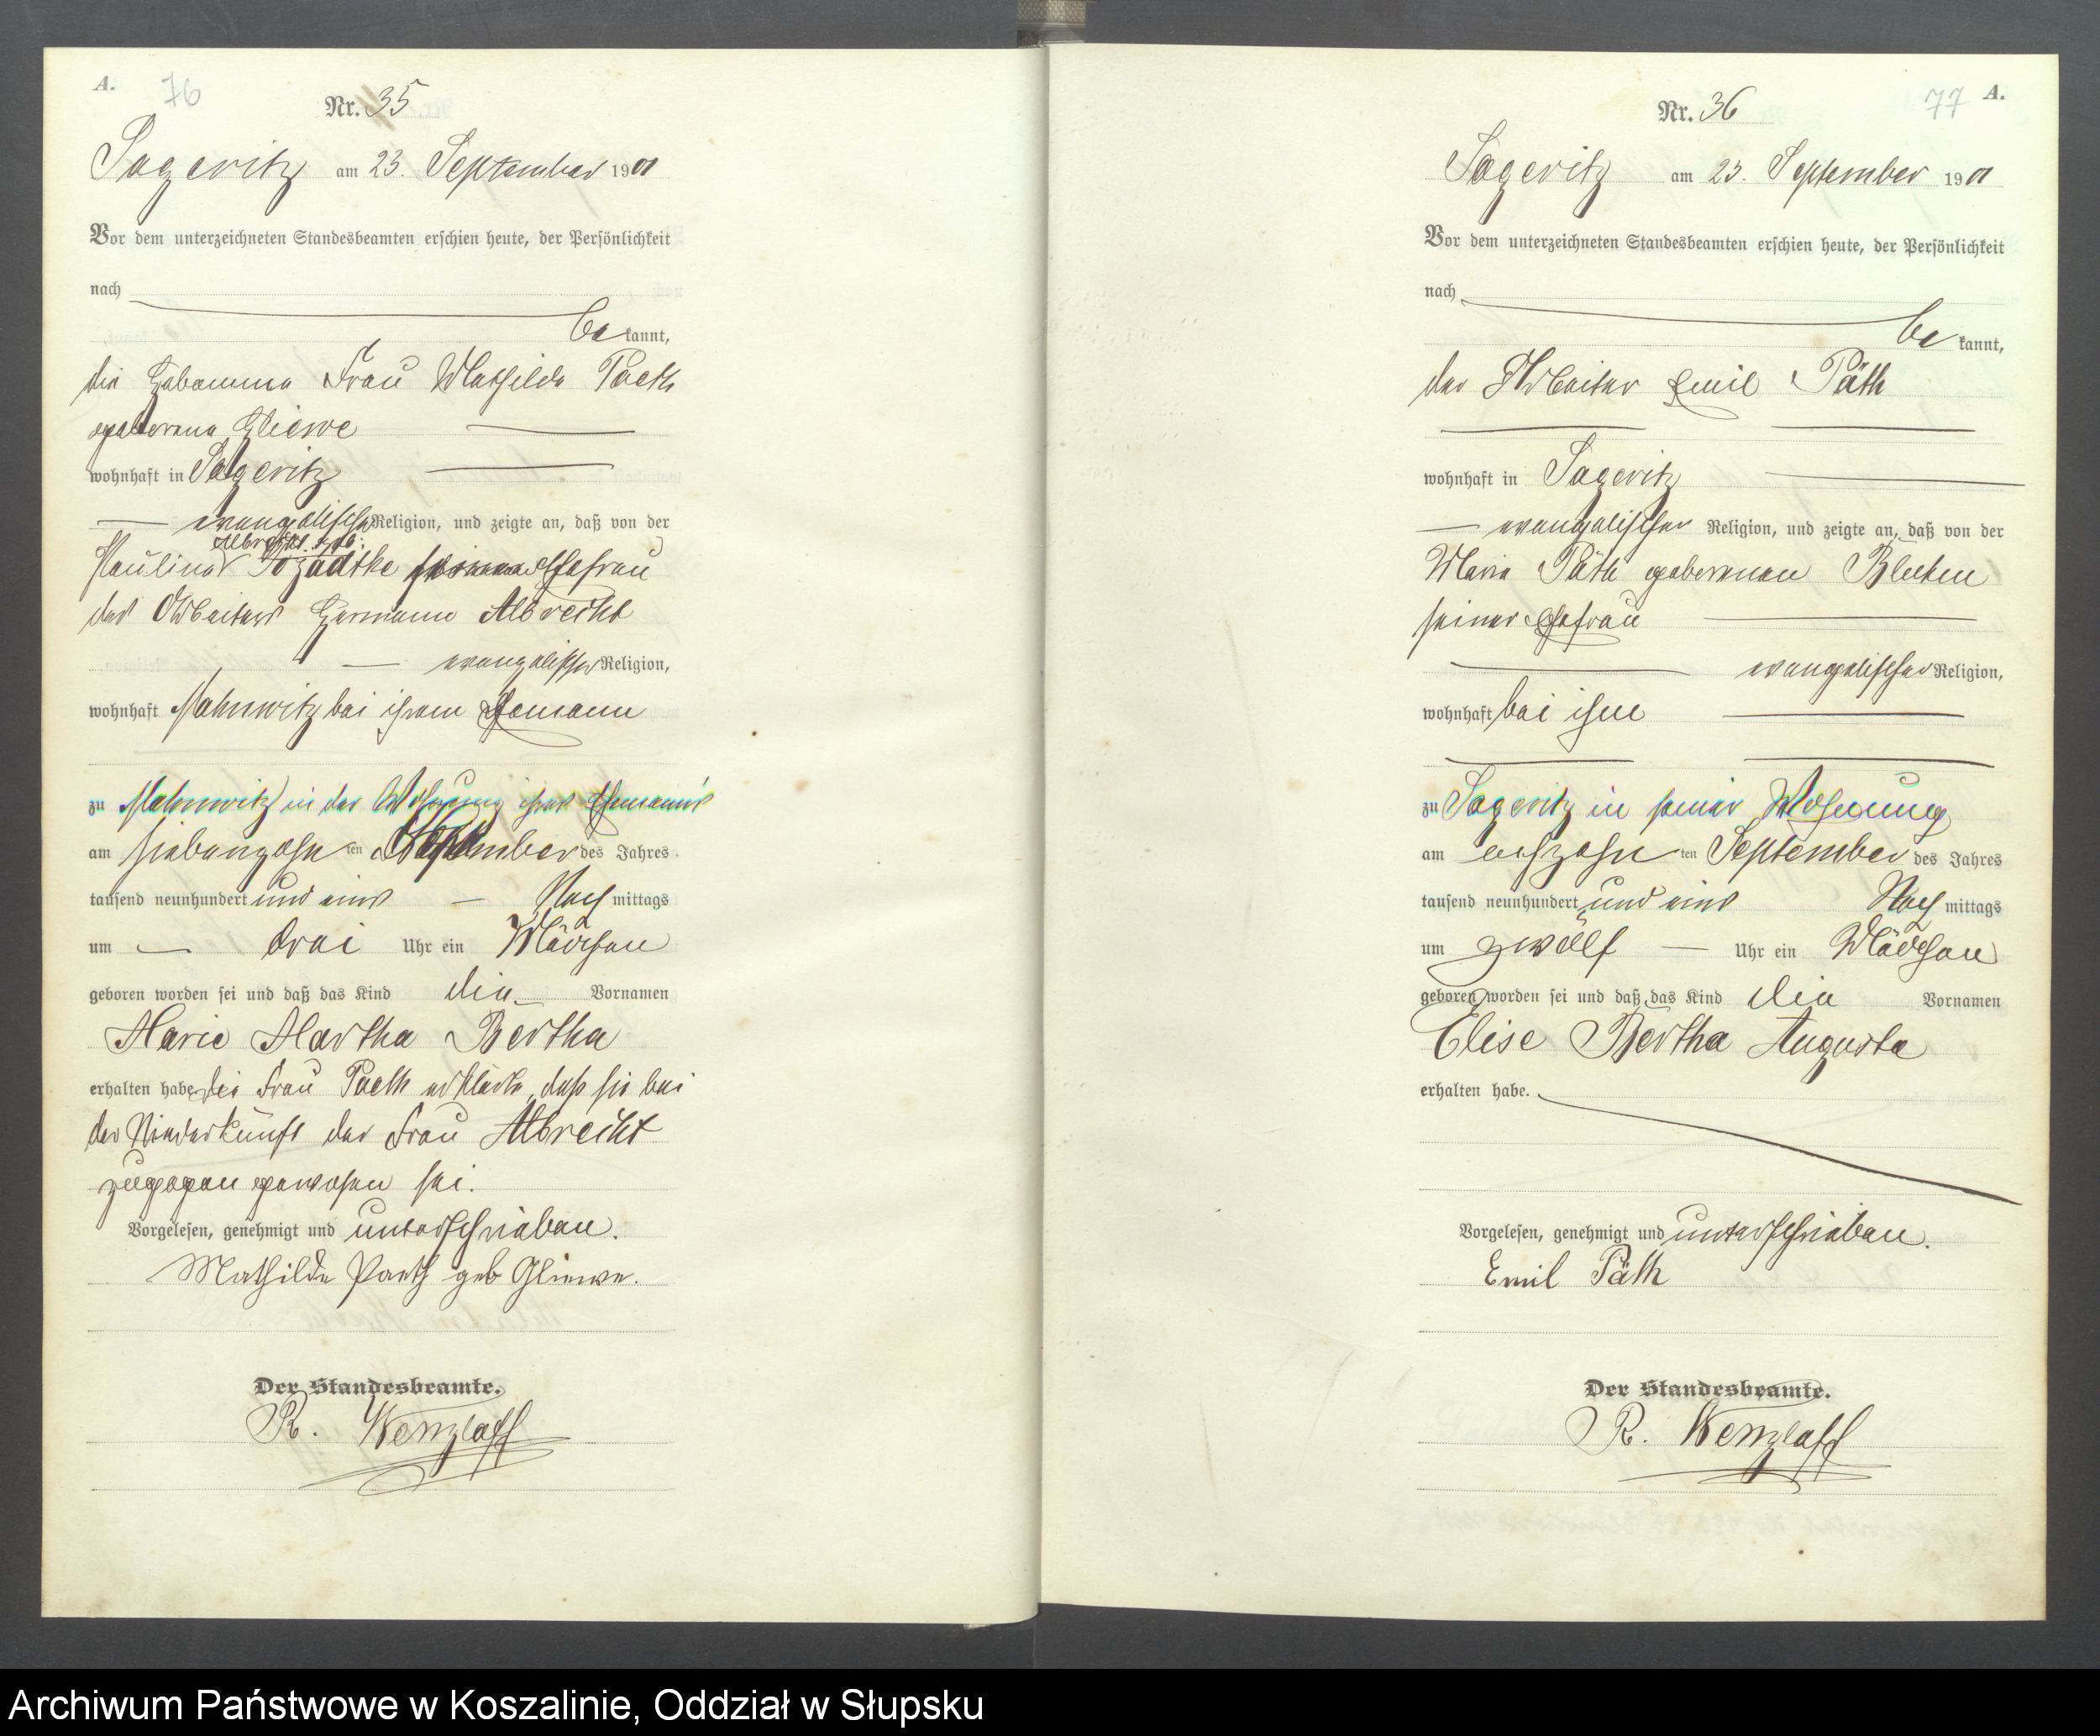 A. 76
Nr. 35
Sageritz am 23. September 1901
Vor dem unterzeichneten Standesbeamten erschien heute, der Persönlichkeit
nach
be kannt,
die Hebamme Frau Mathilde Paeth
geborene Gliewe
wohnhaft in Sageritz
evangelischer Religion, und zeigte an, daß von der
Albrecht geb.
Pauline Ehefrau
des Arbeiters Hermann Albrecht
evangelischer Religion,
wohnhaft Mahnwitz bei ihrem Ehemann
zu Mahnwitz in der Wohnung ihres Ehemann's
am siebenzehn ten September des Jahres
tausend neunhundert und eins Nach mittags
um drei Uhr ein Mädchen
geboren worden sei und daß das Kind die Vornamen
Marie Martha Bertha
erhalten habe. Die Frau Paeth erklärte, daß sie bei
der Niederkunft der Frau Albrecht
zugegen gewesen sei.
Vorgelesen, genehmigt und unterschrieben.
Mathilde Paeth geb Gliewe.
Der Standesbeamte.
R. Wenzlaff
77 A.
Nr. 36
Sageritz am 23. September 1901
Vor dem unterzeichneten Standesbeamten erschien heute, der Persönlichkeit
nach
be kannt,
der Arbeiter Emil Päth
wohnhaft in Sageritz
evangelischer Religion, und zeigte an, daß von der
Marie Päth geborenen
seiner Ehefrau
evangelischer Religion,
wohnhaft bei ihm
zu Sageritz in seiner Wohnung
am achzehn ten September des Jahres
tausend neunhundert und eins Nach mittags
um zwölf Uhr ein Mädchen
geboren worden sei und daß das Kind die Vornamen
Elise Bertha Auguste
erhalten habe.
Vorgelesen, genehmigt und unterschrieben.
Emil Päth
Der Standesbeamte.
R. Wenzlaff
Archiwum Państwowe w Koszalinie, Oddział w Słupsku